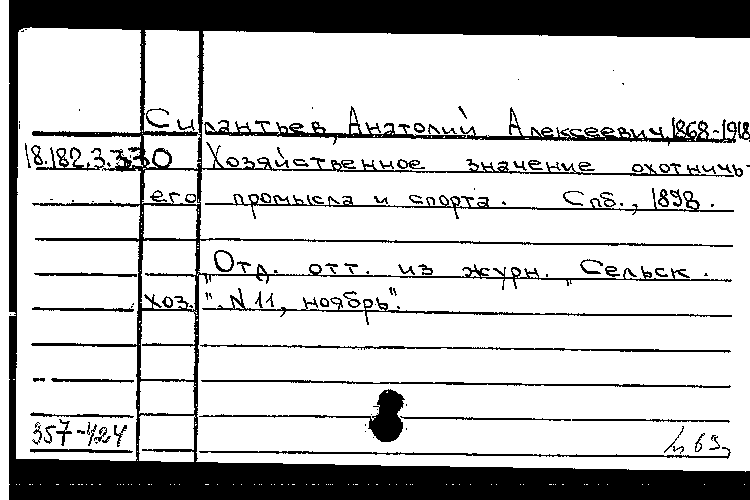 Силантьев, Анатолий Алексеевич, 1868-1918
18.182.3.330 Хозяйственное значение охотничь-
его промысла и спорта. Спб., 1898.
„Отд. отт. из журн. „Сельск.
хоз.". N 11, ноябрь".
357-424